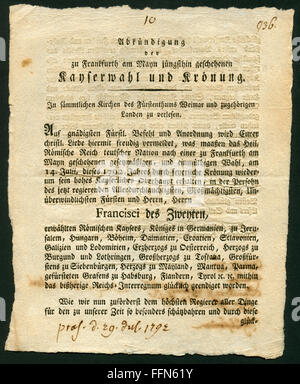 10
936.
Abkündigung
der
zu Frankfurt am Mayn jüngsthin geschehenen
Kayserwahl und Krönung.
In sämmtlichen Kirchen des Fürstenthums Weimar und zugehörigen
Landen zu verlesen.
Auf gnädigsten Fürstl. Befehl und Anordnung wird Eurer
christl. Liebe hiermit freudig vermeldet, was maaßen das Heil.
Römische Reich teutscher Nation nach einer zu Frankfurt am
Mayn geschehenen und einmüthigen Wahl, am
14. Julii, dieses 1792 Jahres und Krönung wieder
um sein hohes Kayserliches Oberhaupt erhalten in der Person
des jetzt regierenden Allerdurchlauchtigsten, Großmächtigsten, Un-
überwindlichsten Fürsten und Herrn, Herrn
Francisci des Zweyten,
erwählten Römischen Kaysers, Königes in Germanien, zu Jeru-
salem, Hungarn, Böheim, Dalmatien, Croatien, Slavonien,
Galizien und Lodomirien, Erzherzogs zu Oesterreich, Herzogs zu
Burgund und Lothringen, Großherzogs zu Toscana, Großfür-
stens zu Siebenbürgen, Herzogs zu Mayland, Mantua, Parma,
gefürsteten Grafens zu Habsburg, Flandern, Tyrol ec. ec. mithin
das bisherige Reichs-Interregnum glücklich geendiget worden.
Wie wir nun zuförderst dem höchsten Regierer aller Dinge
für den zu unserer Zeit so besonders schätzbahren und durch diese
glück-
praes. d. 29. Jul. 1792
alamy stock photo
FFN61Y